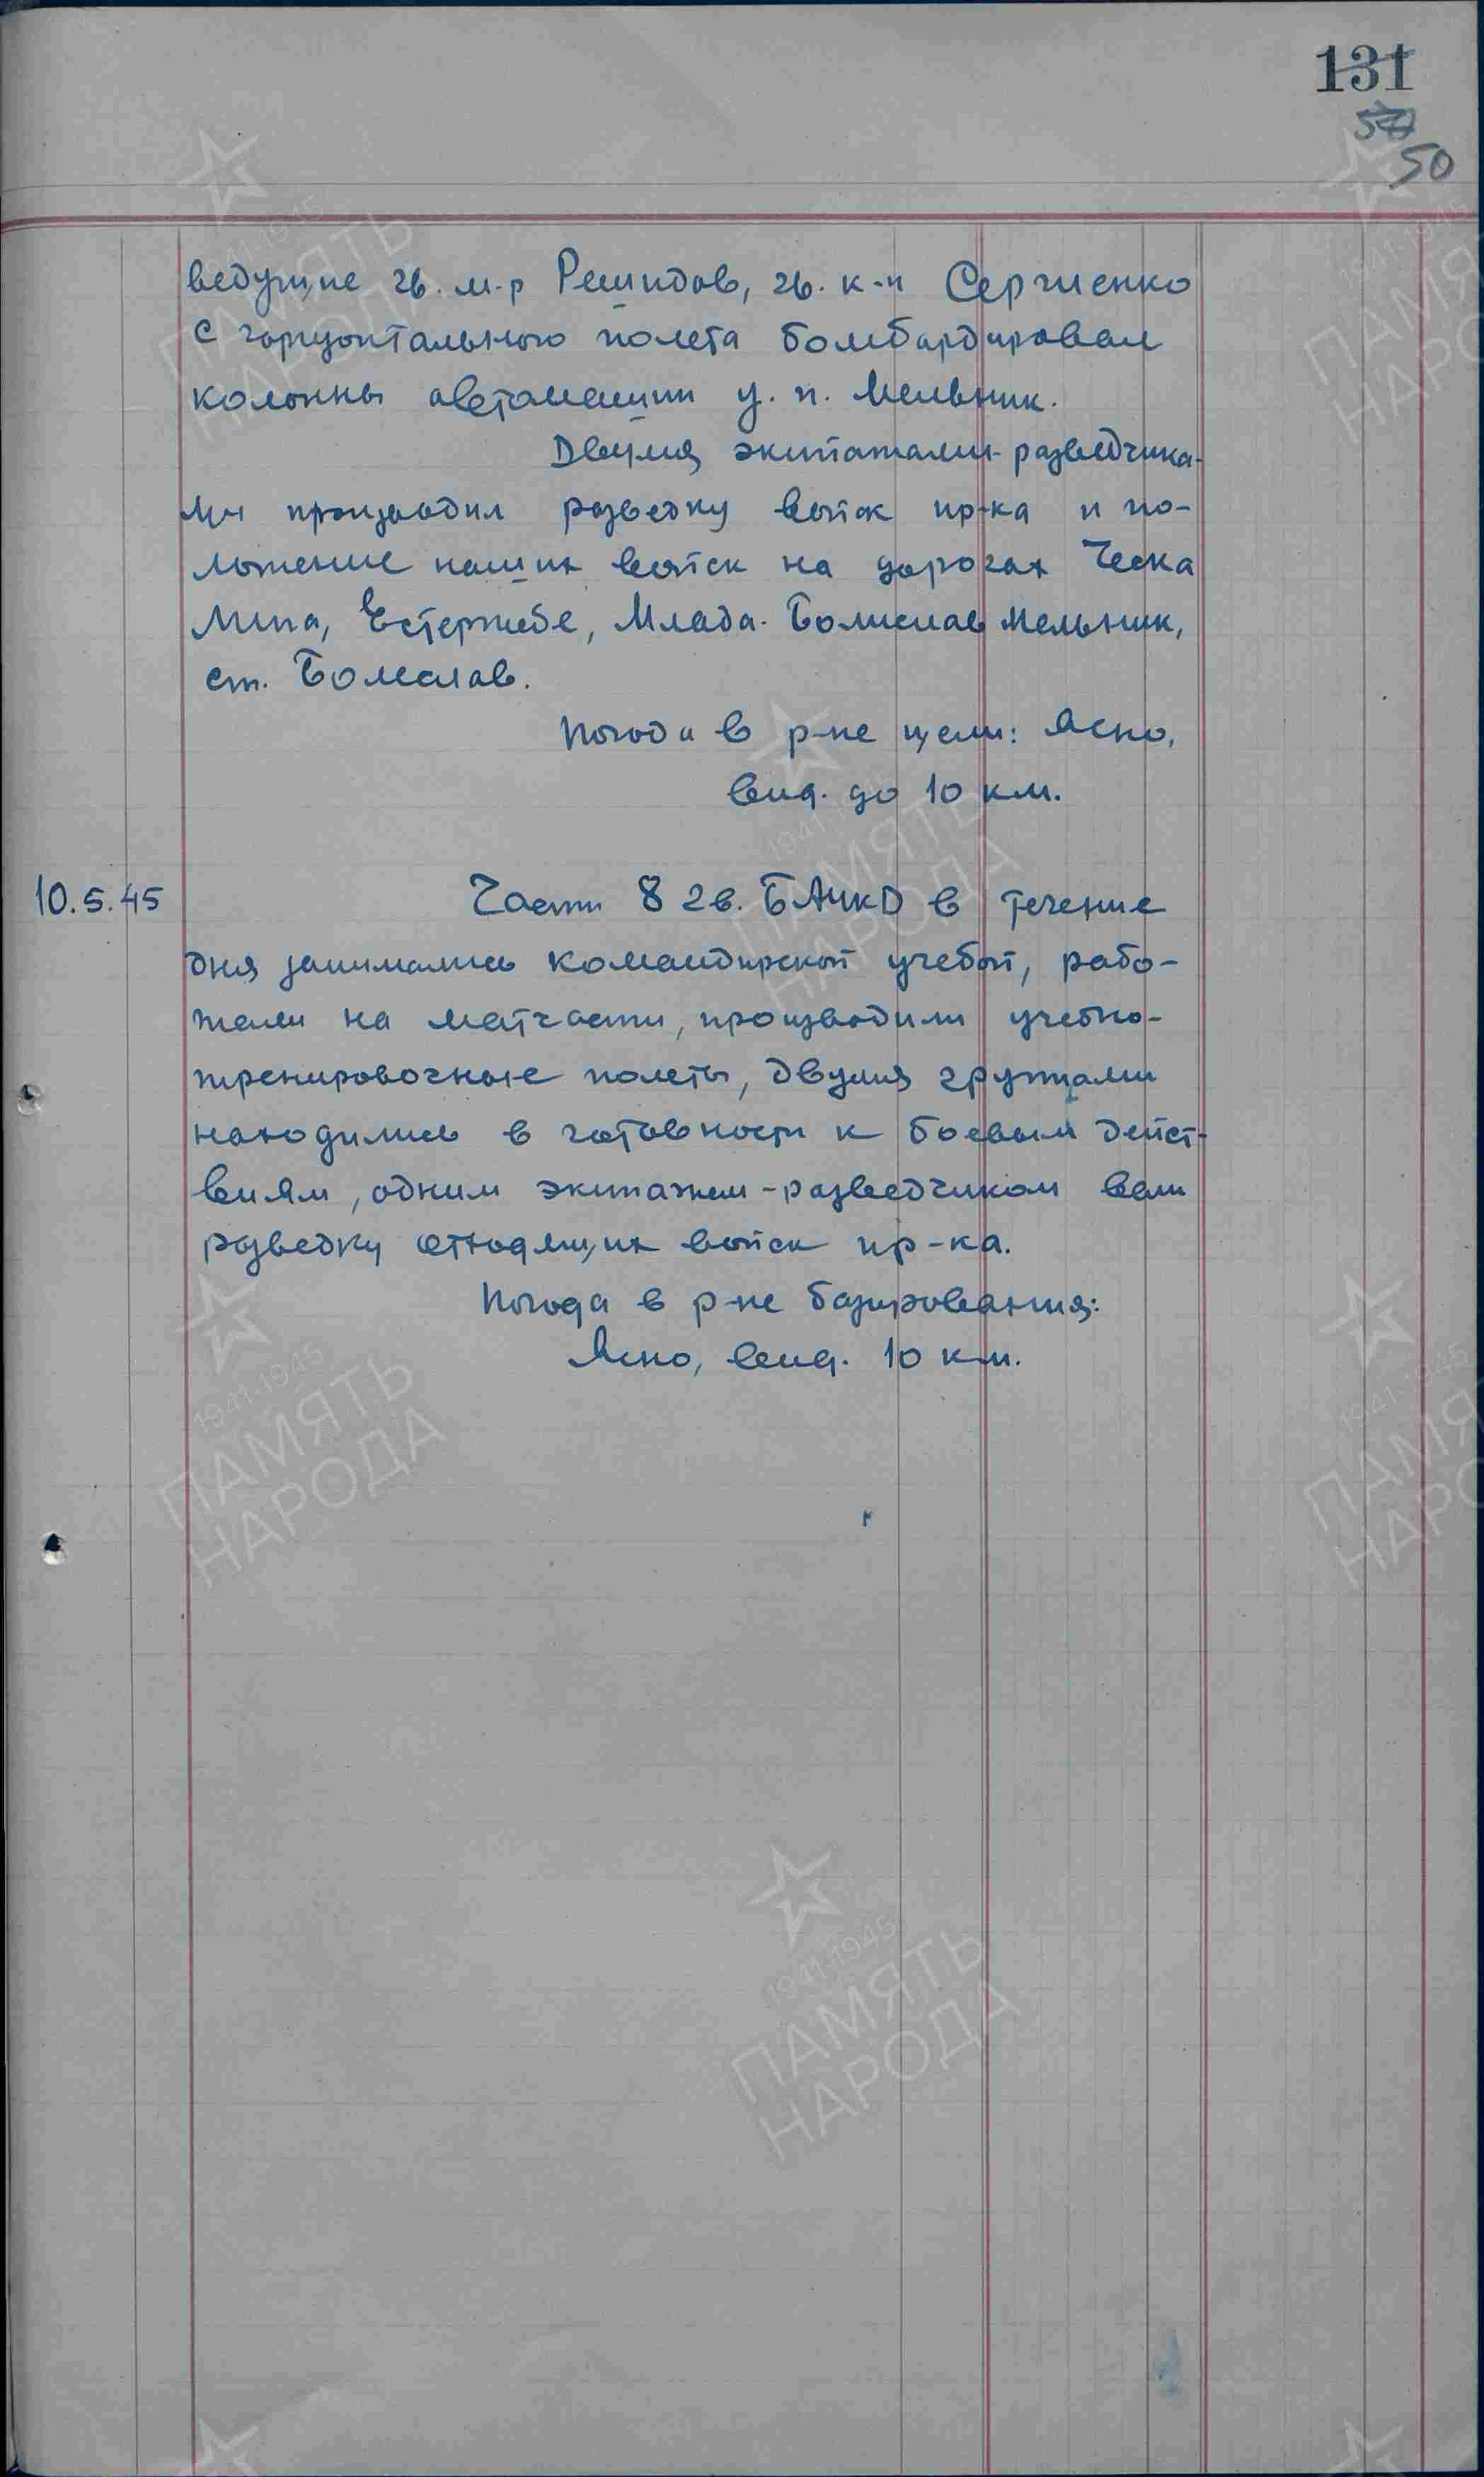 131
50
ведущие гв. м-р Решидов, гв. к-н Сергиенко
с горизонтального полета бомбардировал
колонны автомашин у. п. Мельник.
Двумя экипажами-разведчика-
ми производил разведку войск пр-ка и по-
ложение наших войск на дорогах Ческа
Липа, Естержебе, Млада-Болислав Мельник,
ст. Болеслав.
Погода в р-не цели: Ясно,
вид. до 10 км.
10.5.45 Части 8 гв. БАЧкД в течение
дня занимались командирской учебой, рабо-
тали на матчасти, производили учебно-
тренировочные полеты, двумя группами
находились в готовности к боевым дейст-
виям, одним экипажем-разведчиком вели
разведку отходящих войск пр-ка.
Погода в р-не базирования:
Ясно, вид. 10 км.
1941-1945
ПАМЯТЬ
НАРОДА